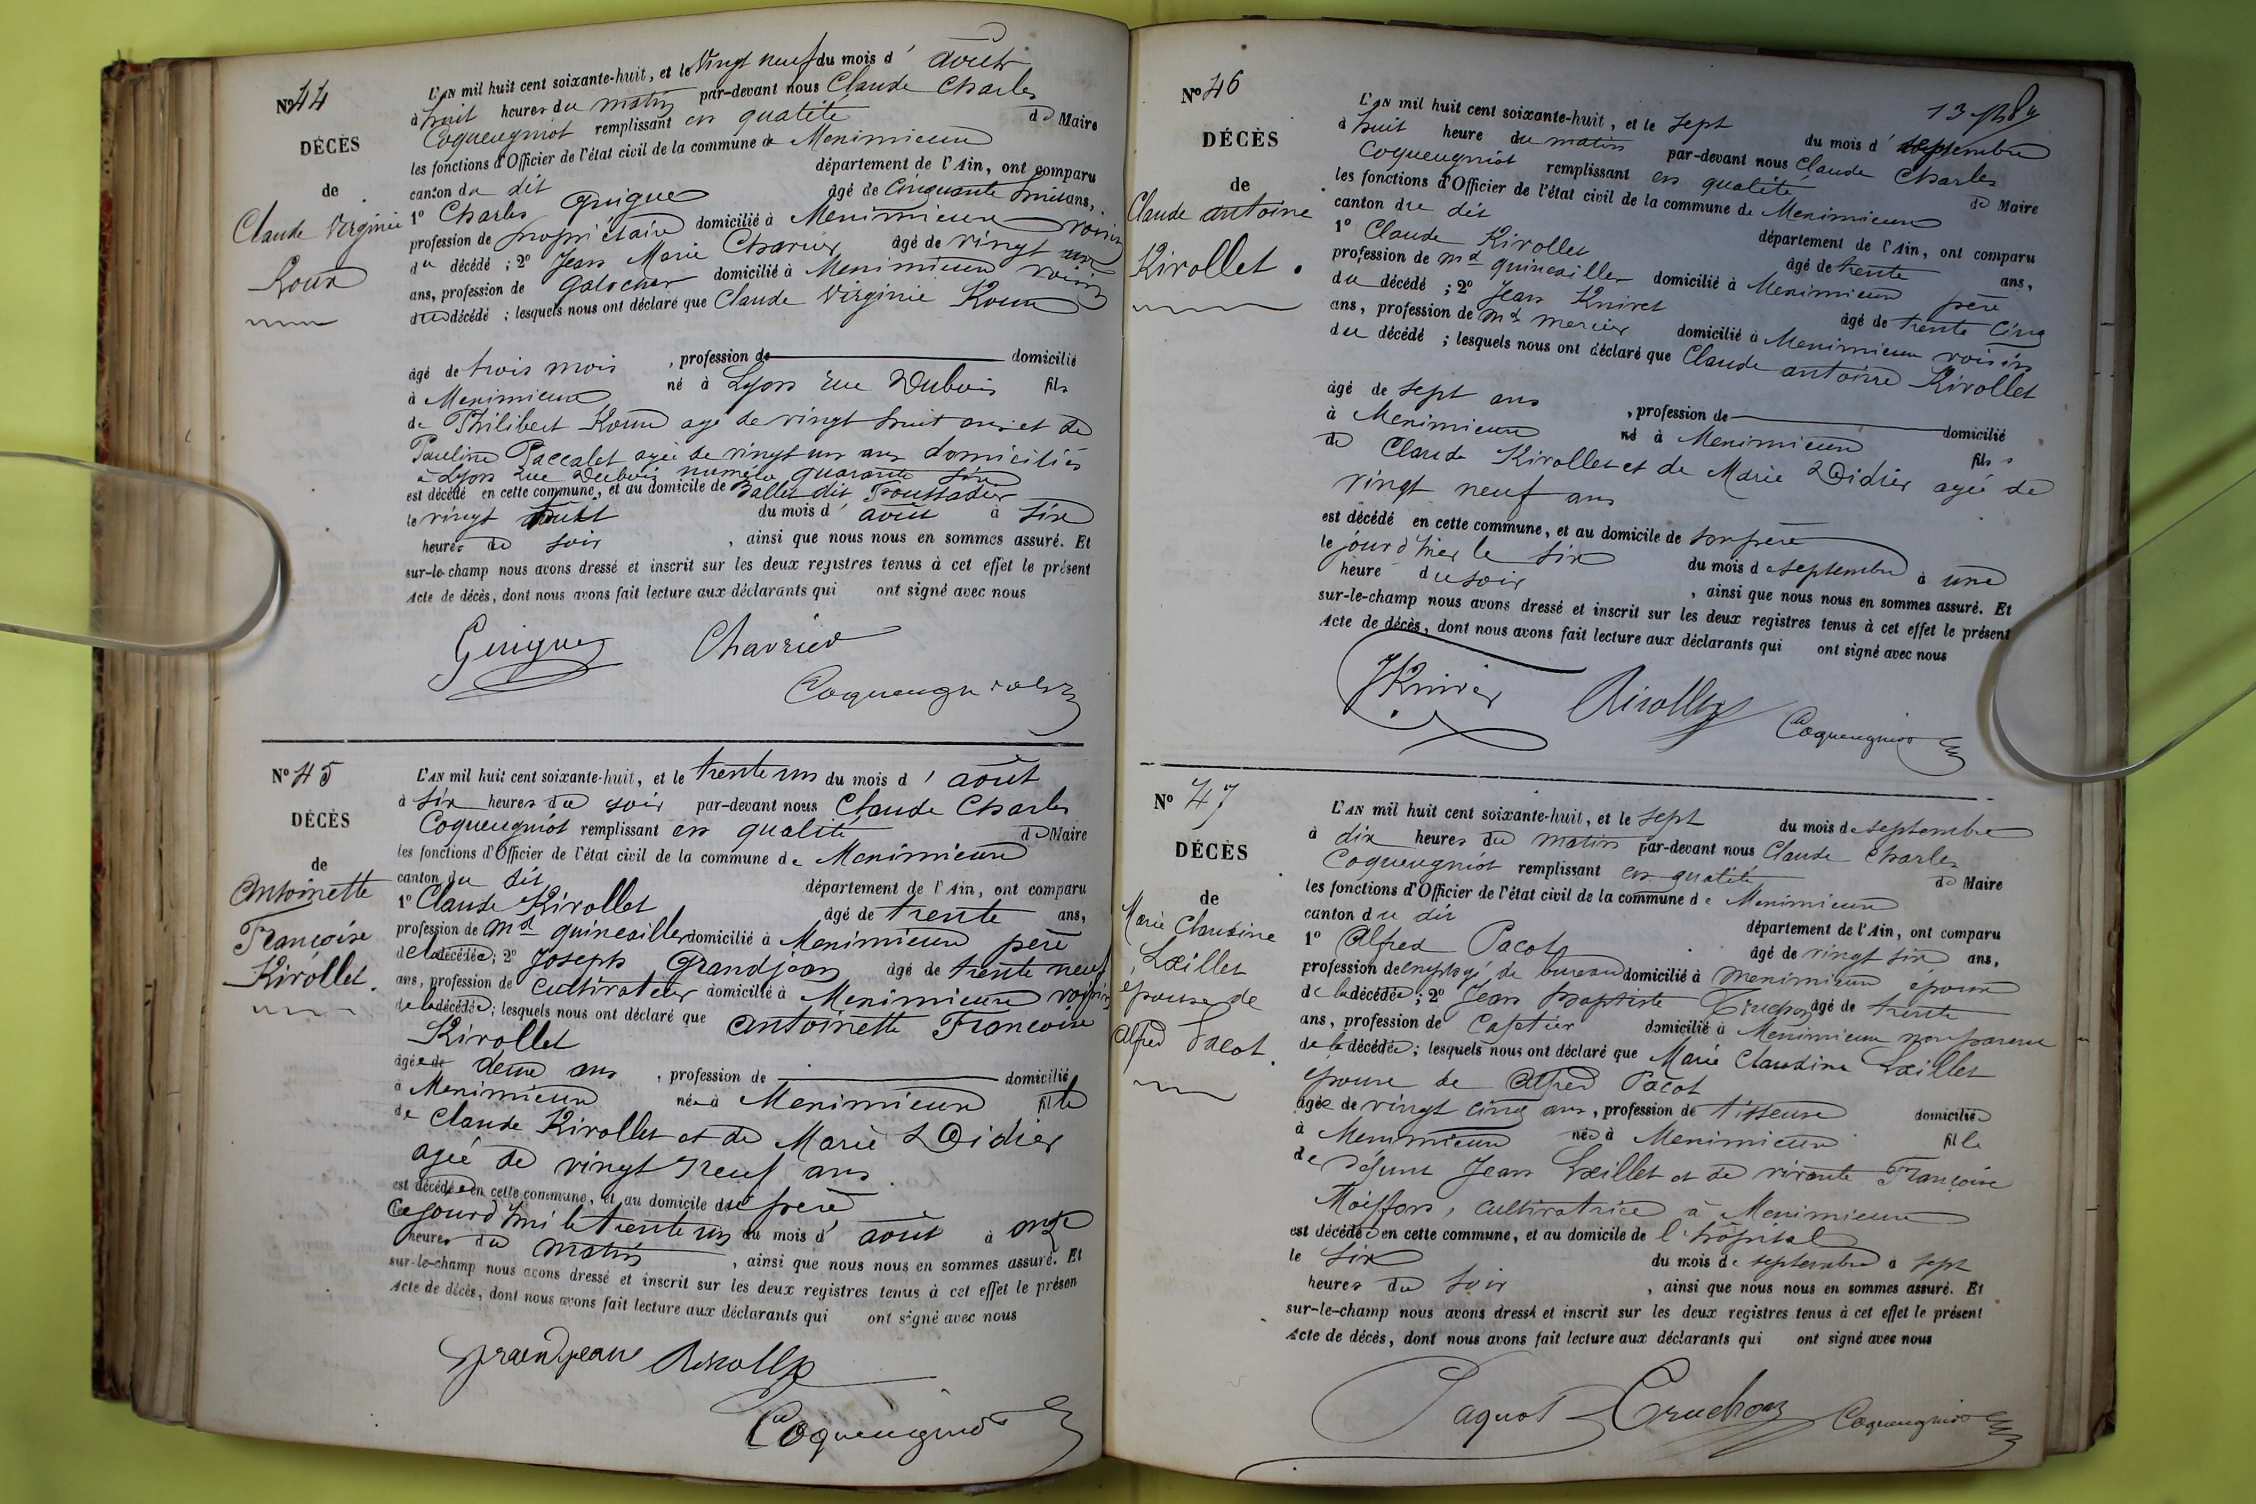 N° 44
DÉCÈS
de
Claude Virginie
Roux
L'AN mil huit cent soixante-huit, et le vingt neuf du mois d'août
à huit heures du matin par-devant nous Claude Charles
Coqueugniot remplissant en qualité de Maire
les fonctions d'Officier de l'état civil de la commune de Meximieux
canton du dit département de l'Ain, ont comparu
1° Charles Guigue âgé de cinquante huit ans,
profession de propriétaire domicilié à Meximieux voisin
du décédé ; 2° Jean Marie Charier âgé de vingt
ans, profession de galocher domicilié à Meximieux voisin
du décédé ; lesquels nous ont déclaré que Claude Virginie Roux
âgé de trois mois , profession de domicilié
à Meximieux né à Lyon rue Dubois fils
de Philibert Roux agé de vingt huit ans et de
Pauline Paccalet agée de vingt un ans domiciliés
à Lyon rue Dubois numéro quarante six
est décédé en cette commune, et au domicile de Ballet dit
le vingt huit du mois d'août à six
heures du soir , ainsi que nous nous en sommes assuré. Et
sur-le-champ nous avons dressé et inscrit sur les deux registres tenus à cet effet le présent
Acte de décès, dont nous avons fait lecture aux déclarants qui ont signé avec nous
Guigue Charrier
Coqueugniot
N° 45
DÉCÈS
de
Antoinette
Françoise
Kirollet.
L'AN mil huit cent soixante-huit, et le trente un du mois d'août
à six heures du soir par-devant nous Claude Charles
Coqueugniot remplissant en qualité de Maire
les fonctions d'Officier de l'état civil de la commune de Meximieux
canton du dit département de l'Ain, ont comparu
1° Claude Kirollet âgé de trente ans,
profession de md quincailler domicilié à Meximieux père
de la décédée ; 2° Joseph Grandjean âgé de trente neuf
ans, profession de cultivateur domicilié à Meximieux voisin
de la décédée ; lesquels nous ont déclaré que Antoinette Françoise
Kirollet
âgée de deux ans , profession de domicilié
à Meximieux née à Meximieux fille
de Claude Kirollet et de Marie Didier
agée de vingt neuf ans
est décédée en cette commune, et au domicile du père
Cejourd'hui le trente un du mois d'août à onze
heures du matin , ainsi que nous nous en sommes assuré. Et
sur-le-champ nous avons dressé et inscrit sur les deux registres tenus à cet effet le présen
Acte de décès, dont nous avons fait lecture aux déclarants qui ont signé avec nous
Grandjean Kirollet
Coqueugniot
N° 46
DÉCÈS
de
Claude Antoine
Kirollet.
L'AN mil huit cent soixante-huit, et le sept du mois d'septembre
à huit heure du matin par-devant nous Claude Charles
Coqueugniot remplissant en qualité de Maire
les fonctions d'Officier de l'état civil de la commune de Meximieux
canton du dit département de l'Ain, ont comparu
1° Claude Kirollet âgé de trente ans,
profession de md quincailler domicilié à Meximieux père
du décédé ; 2° Jean Kniret âgé de trente cinq
ans, profession de md mercier domicilié à Meximieux voisin
du décédé ; lesquels nous ont déclaré que Claude Antoine Kirollet
âgé de sept ans , profession de domicilié
à Meximieux né à Meximieux fils
de Claude Kirollet et de Marie Didier agée de
vingt neuf ans
est décédé en cette commune, et au domicile de son père
le jour d'hier le six du mois de septembre à une
heure du soir , ainsi que nous nous en sommes assuré. Et
sur-le-champ nous avons dressé et inscrit sur les deux registres tenus à cet effet le présent
Acte de décès, dont nous avons fait lecture aux déclarants qui ont signé avec nous
Kirollet Coqueugniot
N° 47
DÉCÈS
de
Marie Claudine
Œillet
épouse de
Alfred Pacot.
L'AN mil huit cent soixante-huit, et le sept du mois de septembre
à dix heures du matin par-devant nous Claude Charles
Coqueugniot remplissant en qualité de Maire
les fonctions d'Officier de l'état civil de la commune de Meximieux
canton du dit département de l'Ain, ont comparu
1° Alfred Pacot âgé de vingt six ans,
profession de employé de bureau domicilié à Meximieux époux
de la décédée ; 2° Jean Baptiste Cruchon âgé de trente
ans, profession de cafetier domicilié à Meximieux non parent
de la décédée ; lesquels nous ont déclaré que Marie Claudine Œillet
épouse de Alfred Pacot
âgée de vingt cinq ans, profession de tisseuse domicilié
à Meximieux née à Meximieux fille
de défunt Jean Œillet et de vivante Françoise
Moiffon, cultivatrice à Meximieux
est décédée en cette commune, et au domicile de l'hôpital
le six du mois de septembre à sept
heures du soir , ainsi que nous nous en sommes assuré. Et
sur-le-champ nous avons dressé et inscrit sur les deux registres tenus à cet effet le présent
Acte de décès, dont nous avons fait lecture aux déclarants qui ont signé avec nous
Paquot Cruchon Coqueugniot